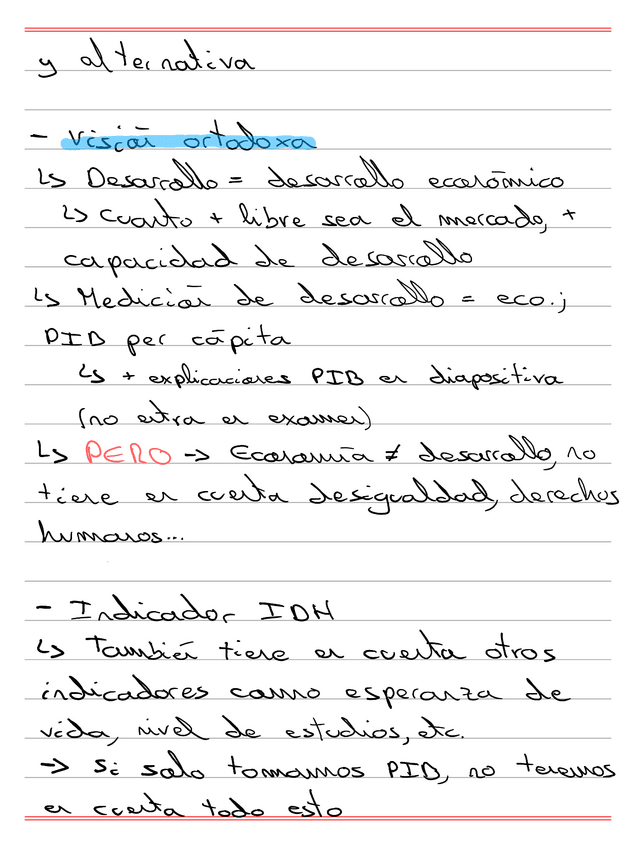 y alternativa
- Visión ortodoxa
↳ Desarrollo = desarrollo económico
↳ Cuanto + libre sea el mercado, +
capacidad de desarrollo
↳ Medición de desarrollo = eco.;
PIB per cápita
↳ + explicaciones PIB en diapositiva
(no entra en examen)
↳ PERO → Economía ≠ desarrollo, no
tiene en cuenta desigualdad, derechos
humanos...
- Indicador IDH
↳ También tiene en cuenta otros
indicadores como esperanza de
vida, nivel de estudios, etc.
→ Si solo tomamos PIB, no tenemos
en cuenta todo esto